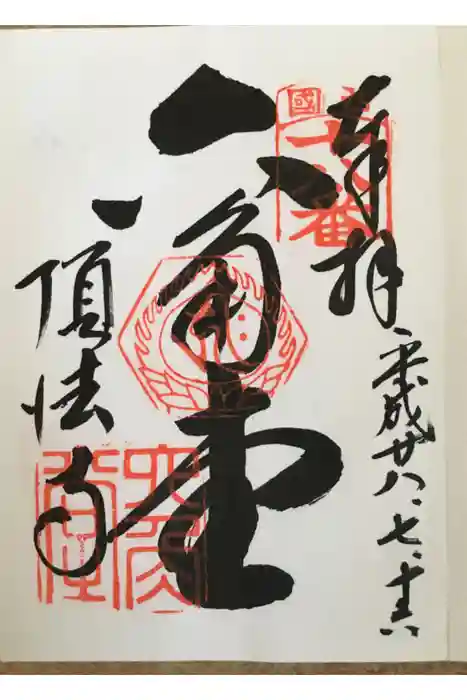 奉拝
平成廿八、七、十六
六角堂
頂法寺
西國
十八番
六角堂